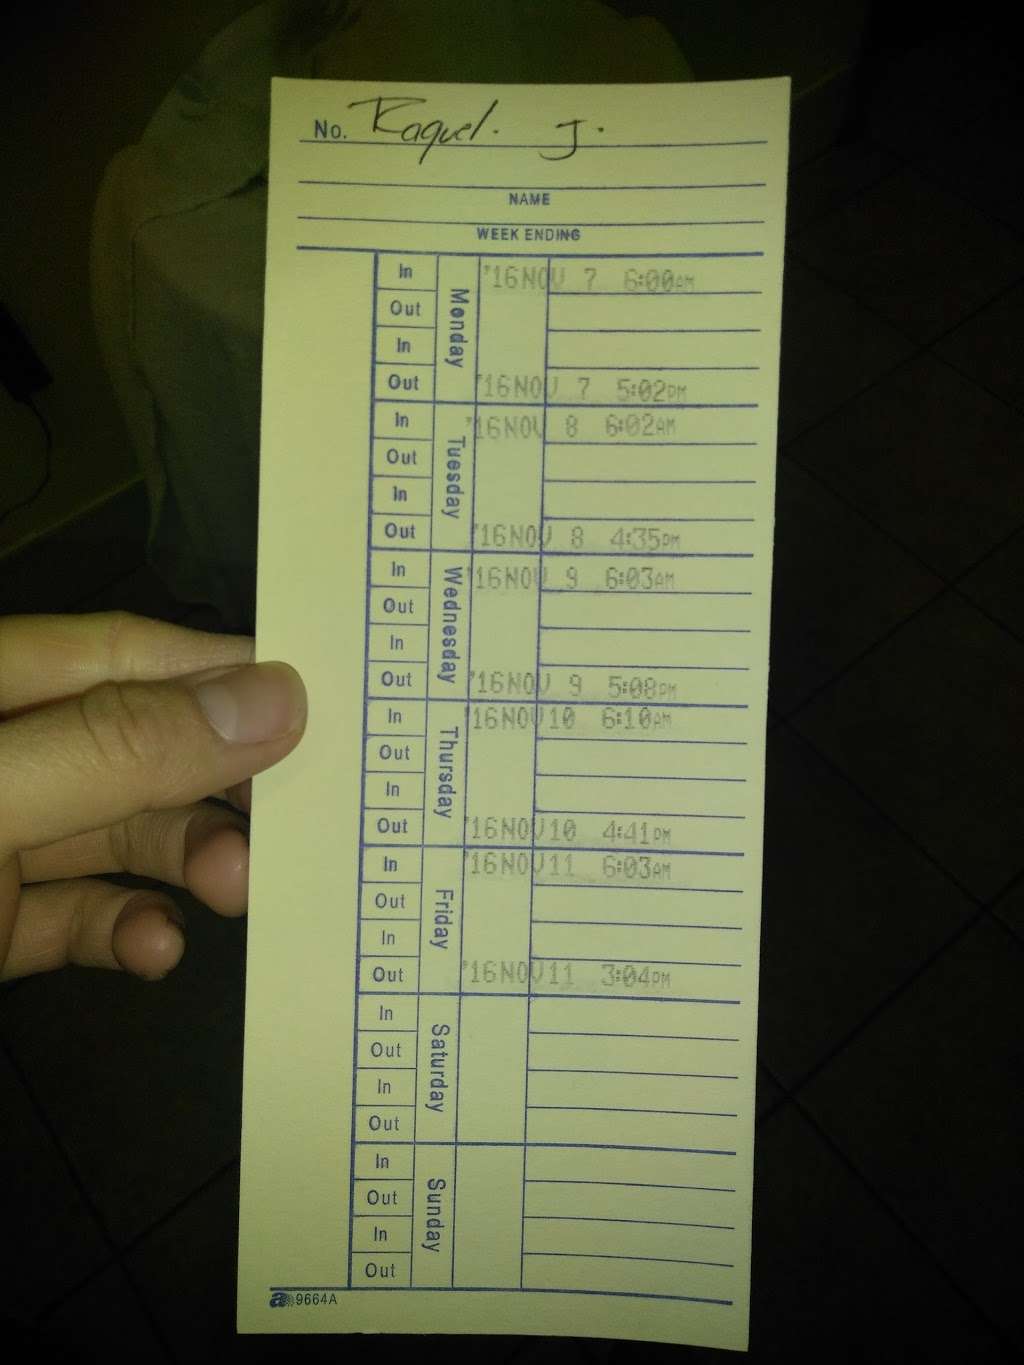 No. Raquel. J.
NAME
WEEK ENDING
Monday
In '16NOV 7 6:00AM
Out
In
Out '16NOV 7 5:02PM
Tuesday
In '16NOV 8 6:02AM
Out
In
Out '16NOV 8 4:35PM
Wednesday
In '16NOV 9 6:03AM
Out
In
Out '16NOV 9 5:08PM
Thursday
In '16NOV10 6:10AM
Out
In
Out '16NOV10 4:41PM
Friday
In '16NOV11 6:03AM
Out
In
Out '16NOV11 3:04PM
Saturday
In
Out
In
Out
Sunday
In
Out
In
Out
a 9664A